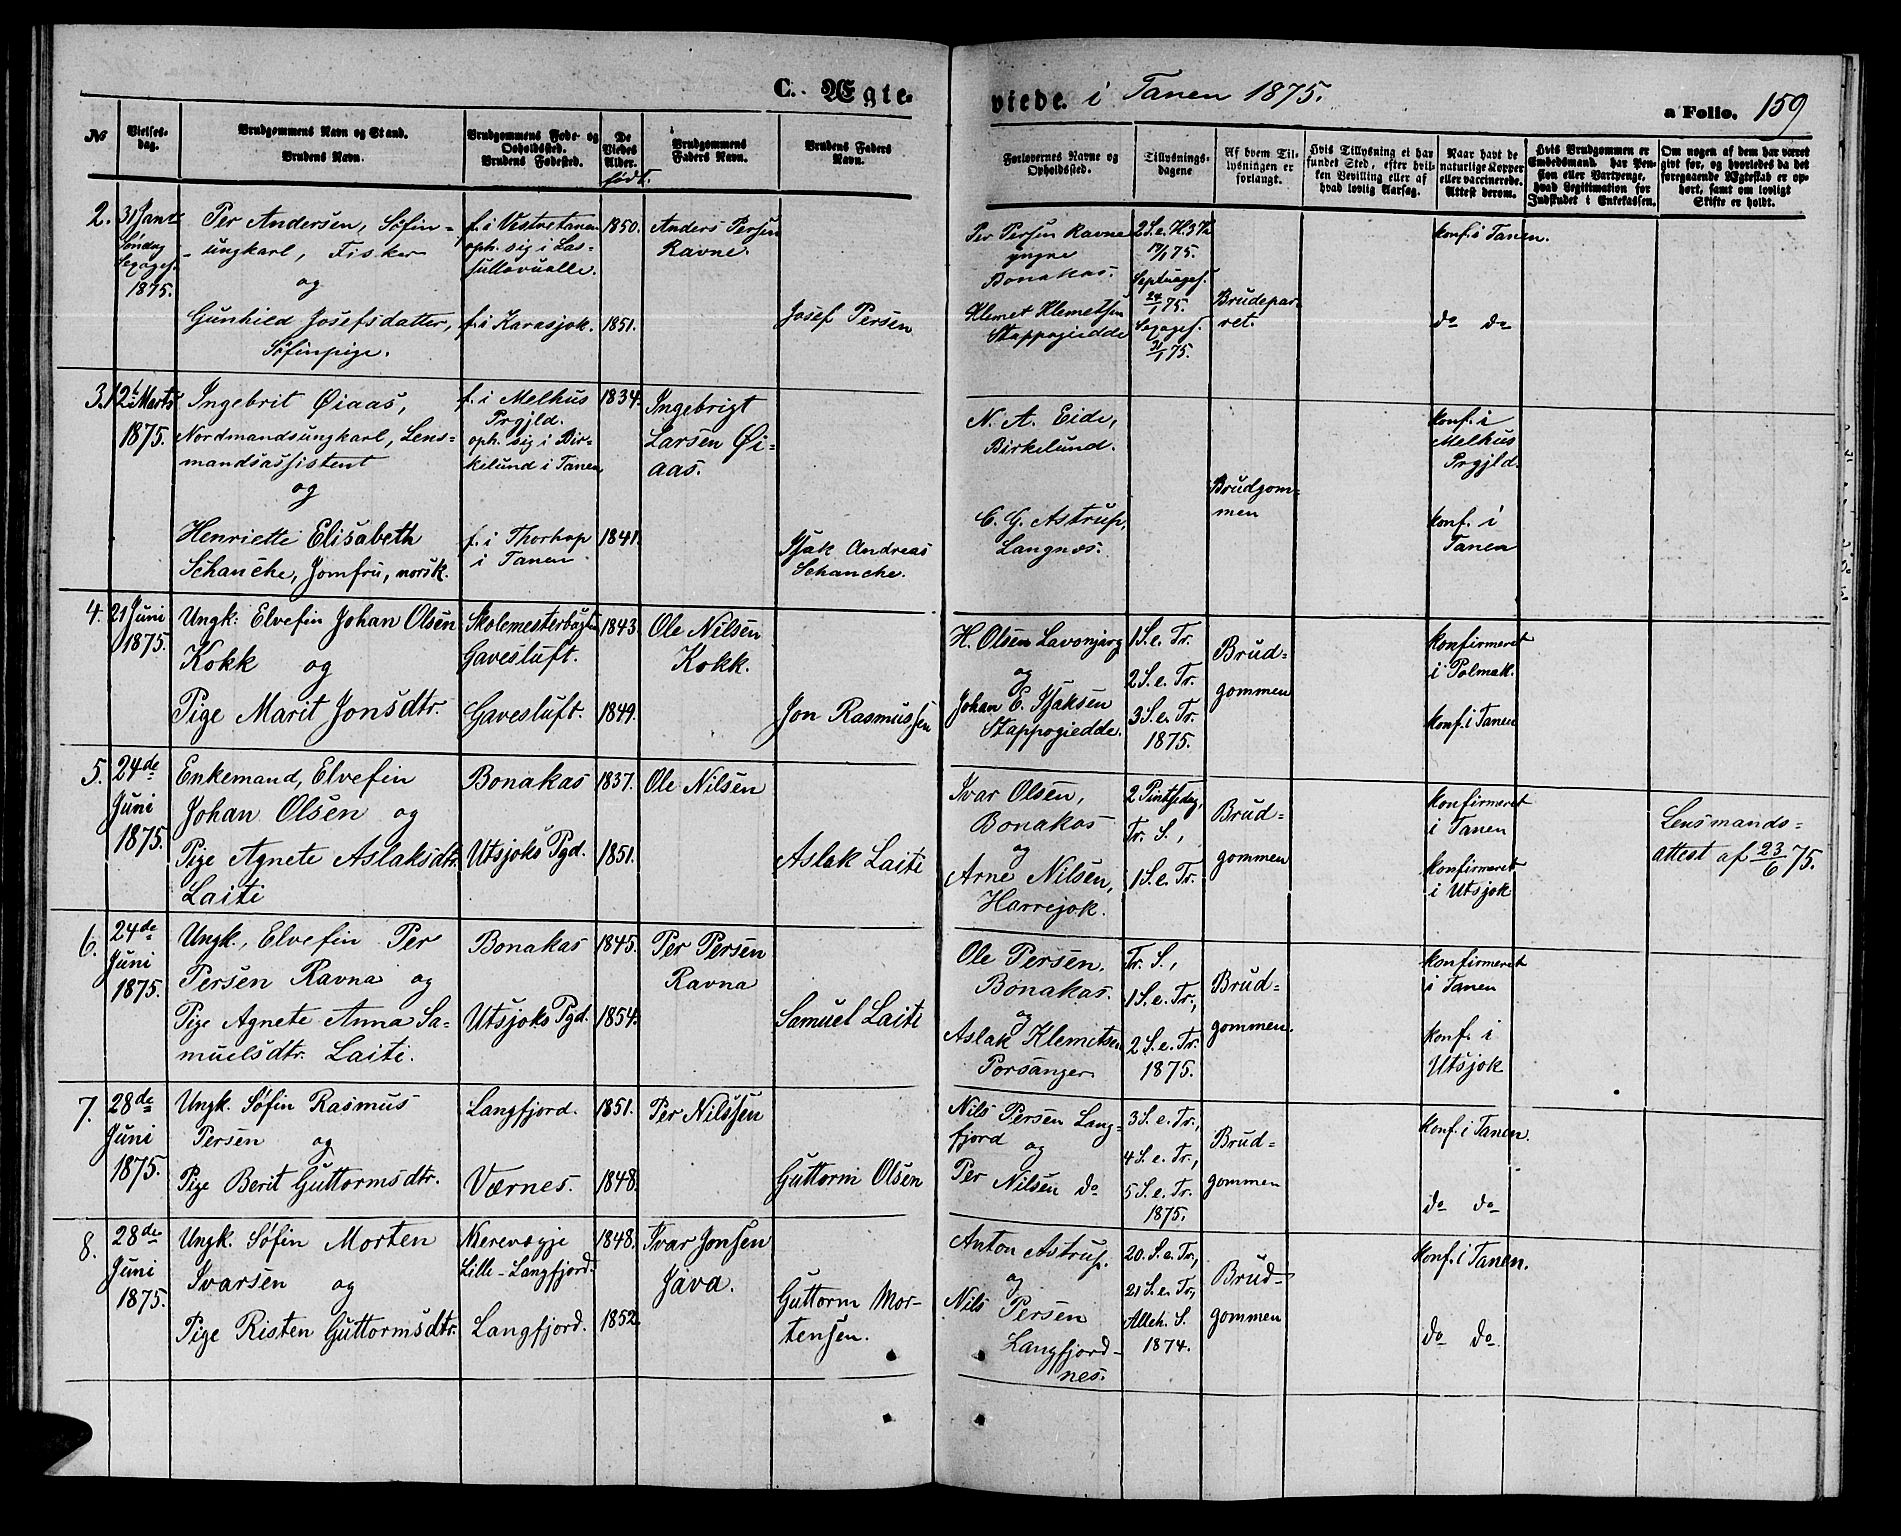 C. Ægte-
viede. i Tanen 1875.
a Folio. 159
No
Vielses-
dag.
Brudgommens Navn og Stand.
Brudens Navn.
Brudgommens Føde- og
Opholdssted.
Brudens Fødested.
De
Viedes
Alder.
født.
Brudgommens
Faders Navn.
Brudens Faders
Navn.
Forlovernes Navne og
Opholdssted.
Tillysnings-
dagene
Af hvem Til-
lysningen er
forlangt.
Hvis Tillysning ei har
fundet Sted, efter hvil-
ken Bevilling eller af
hvad lovlig Aarsag.
Naar havt de
naturlige Kopper
eller vaccinerede.
Attest derom.
Hvis Brudgommen er
Embedsmand, har Pen-
sion eller Vartpenge,
hvad Legitimation for
Indskudet i Enkekassen.
Om nogen af dem har været
givt før, og hvorledes da det
foregaaende Ægteskab er op-
hørt, samt om lovligt
Skifte er holdt.
2.
31 Janr
Søndag
Sexages.
1875.
Per Andersen, Søfin-
ungkarl, Fisker
og
Gunhild Josefsdatter,
Søfinpige.
f. i Vestretanen
oph. sig i Las-
sullovualle.
f. i Karasjok.
1850.
1851.
Anders Persen
Ravne.
Josef Persen
Per Persen Ravne
yngre
Bonakas.
Klemet Klemetsen
Stappogiedde
2 S. e. H. 3 K.
17/1 75.
Septuages.
24/1 75.
Sexages.
31/1 75.
Brudepar-
ret.
konf. i Tanen.
do do
3.
12 Marts
1875.
Ingebrit Øiaas,
Nordmandsungkarl, Lens-
mandsassistent
og
Henriette Elisabeth
Schanche, Jomfru, norsk.
f. i Melhus
Prgjld.
oph. sig i Bir-
kelund i Tanen
f. i Thorhop
i Tanen
1834.
1841.
Ingebrigt
Larsen Øi-
aas.
Isak Andreas
Schanche.
N. A. Eide,
Birkelund.
C. G. Astrup,
Langnes.
Brudgom-
men
konf. i
Melhus
Prgjld.
konf. i
Tanen
4.
21 Juni
1875.
Ungk: Elvefin Johan Olsen
Kokk og
Pige Marit Jonsdtr.
Skolemesterbugten
Gavesluft.
Gavesluft.
1843.
1849.
Ole Nilsen
Kokk.
Jon Rasmussen
H. Olsen Lavonjarg
og
Johan E. Isaksen
Stappogiedde.
1 S. e. Tr.
2 S. e. Tr.
3 S. e. Tr.
1875.
Brud-
gommen
konfirmeret
i Polmak.
konf. i Tanen
5.
24de
Juni
1875.
Enkemand, Elvefin
Johan Olsen og
Pige Agnete Aslaksdtr.
Laiti
Bonakas
Utsjoks Pgd.
1837.
1851.
Ole Nilsen
Aslak Laiti
Ivar Olsen,
Bonakas
og
Arne Nilsen,
Harrejok.
2 Pintsedag,
Tr. S.,
1 S. e. Tr.
Brud-
gommen
konfirmeret
i Tanen
konfirmeret
i Utsjok
Lensmands-
attest af 23/6 75.
6.
24de
Juni
1875.
Ungk., Elvefin Per
Persen Ravna og
Pige Agnete Anna Sa-
muelsdtr. Laiti.
Bonakas
Utsjoks Pgd.
1845.
1854.
Per Persen
Ravna
Samuel Laiti
Ole Persen,
Bonakas.
og
Aslak Klemitsen
Porsanger
Tr. S.,
1 S. e. Tr.,
2 S. e. Tr.
1875.
Brud-
gommen.
konfirmeret
i Tanen
konf. i
Utsjok
7.
28de
Juni
1875.
Ungk. Søfin Rasmus
Persen og
Pige Berit Guttormsdtr.
Langfjord.
Værnes.
1851.
1848.
Per Nilssen
Guttorm Olsen
Nils Persen Lang-
fjord og
Per Nilsen do
3 S. e. Tr.,
4 S. e. Tr.,
5 S. e. Tr.
1875.
Brud-
gommen
konf. i Tanen.
do do
8.
28de
Juni
1875.
Ungk. Søfin Morten
Ivarsen og
Pige Risten Guttormsdtr.
Nerevægje
Lille-Langfjord.
Langfjord.
1848.
1852.
Ivar Jonsen
Java.
Guttorm Mor-
tensen.
Anton Astrup.
og
Nils Persen
Langfjord-
nes.
20. S. e. Tr.,
21 S. e. Tr.,
Alleh. S.
1874.
Brud-
gommen
konf. i Tanen.
do do